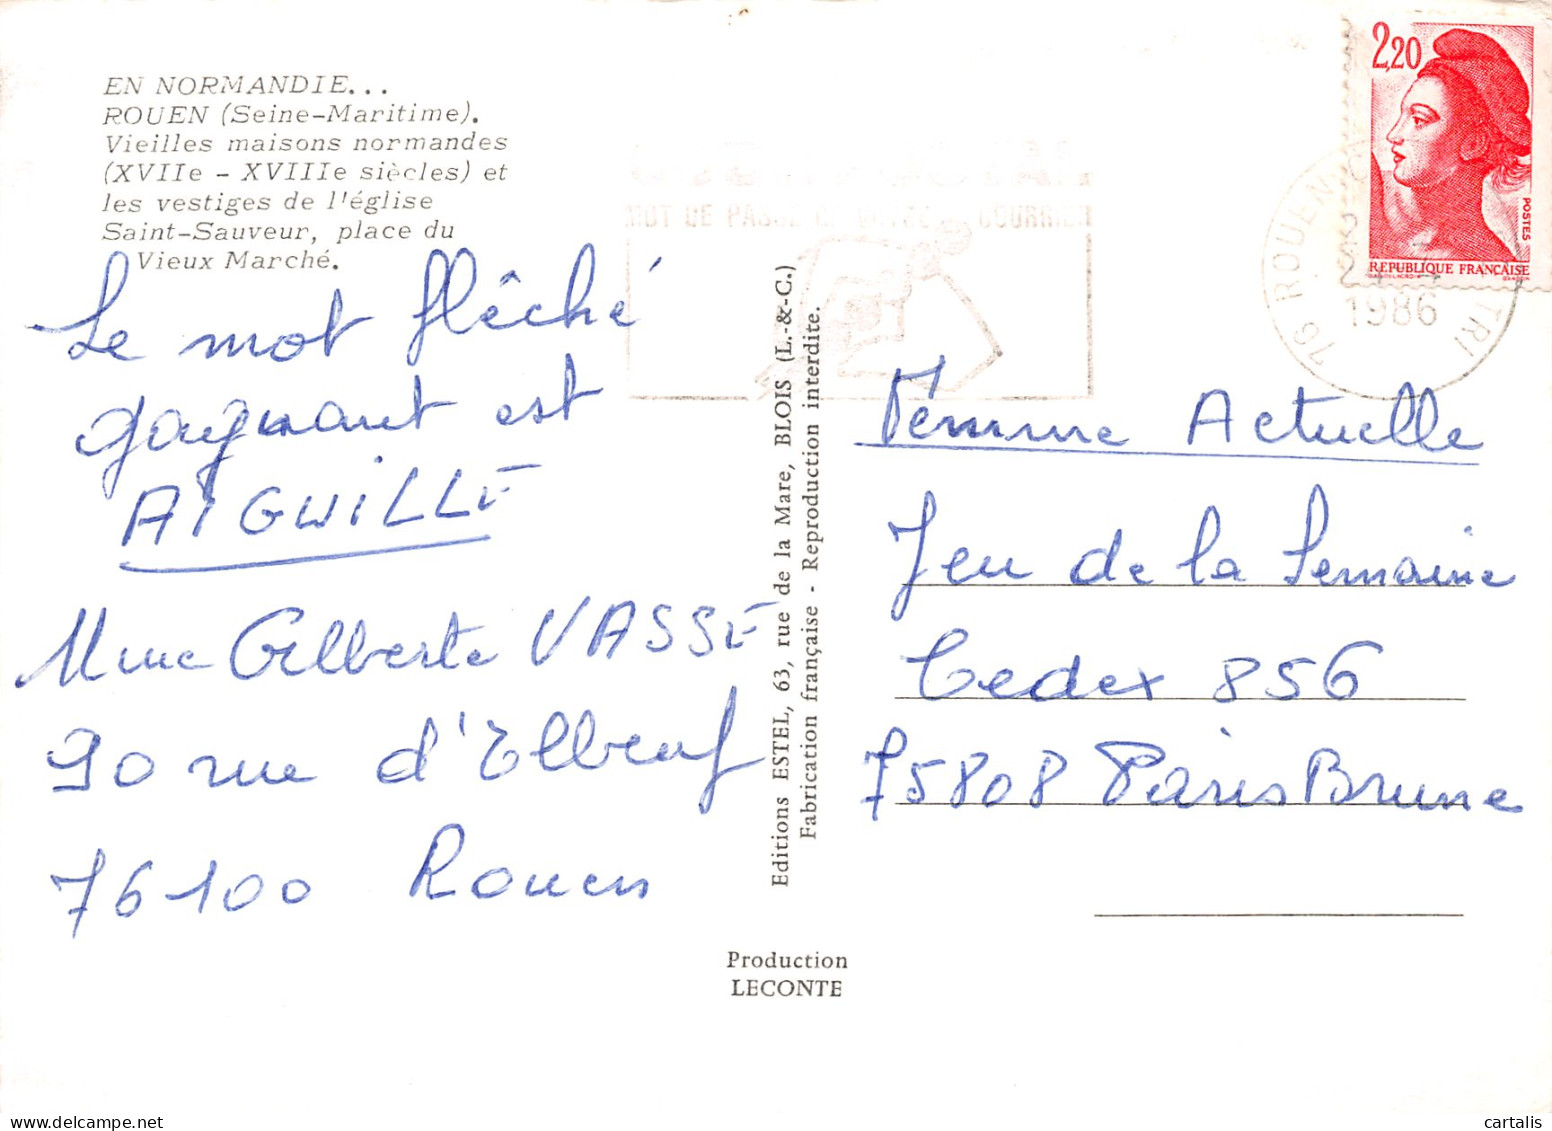 EN NORMANDIE...
ROUEN (Seine-Maritime).
Vieilles maisons normandes
(XVIIe - XVIIIe siècles) et
les vestiges de l'église
Saint-Sauveur, place du
Vieux Marché.
Le mot flêché
gagnant est
AIGUILLE
Mme Gilberte VASSE
90 rue d'Elbeuf
76100 Rouen
Editions ESTEL, 63, rue de la Mare, BLOIS (L.-&-C.)
Fabrication française - Reproduction interdite.
Production
LECONTE
MOT DE COURRIER
2,20
POSTES
REPUBLIQUE FRANÇAISE
76 ROUEN TRI
1986
Femme Actuelle
Jeu de la Semaine
Cedex 856
75808 Paris Brune
cartalis